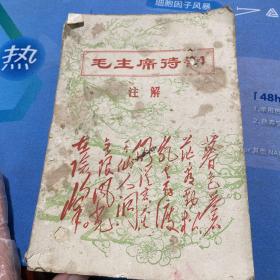 细胞因子风暴
热
毛主席诗
注解
暮色苍
茫看劲松
乱云飞渡
仍从容天生
一个仙人洞
无限风光
在险峰
48h